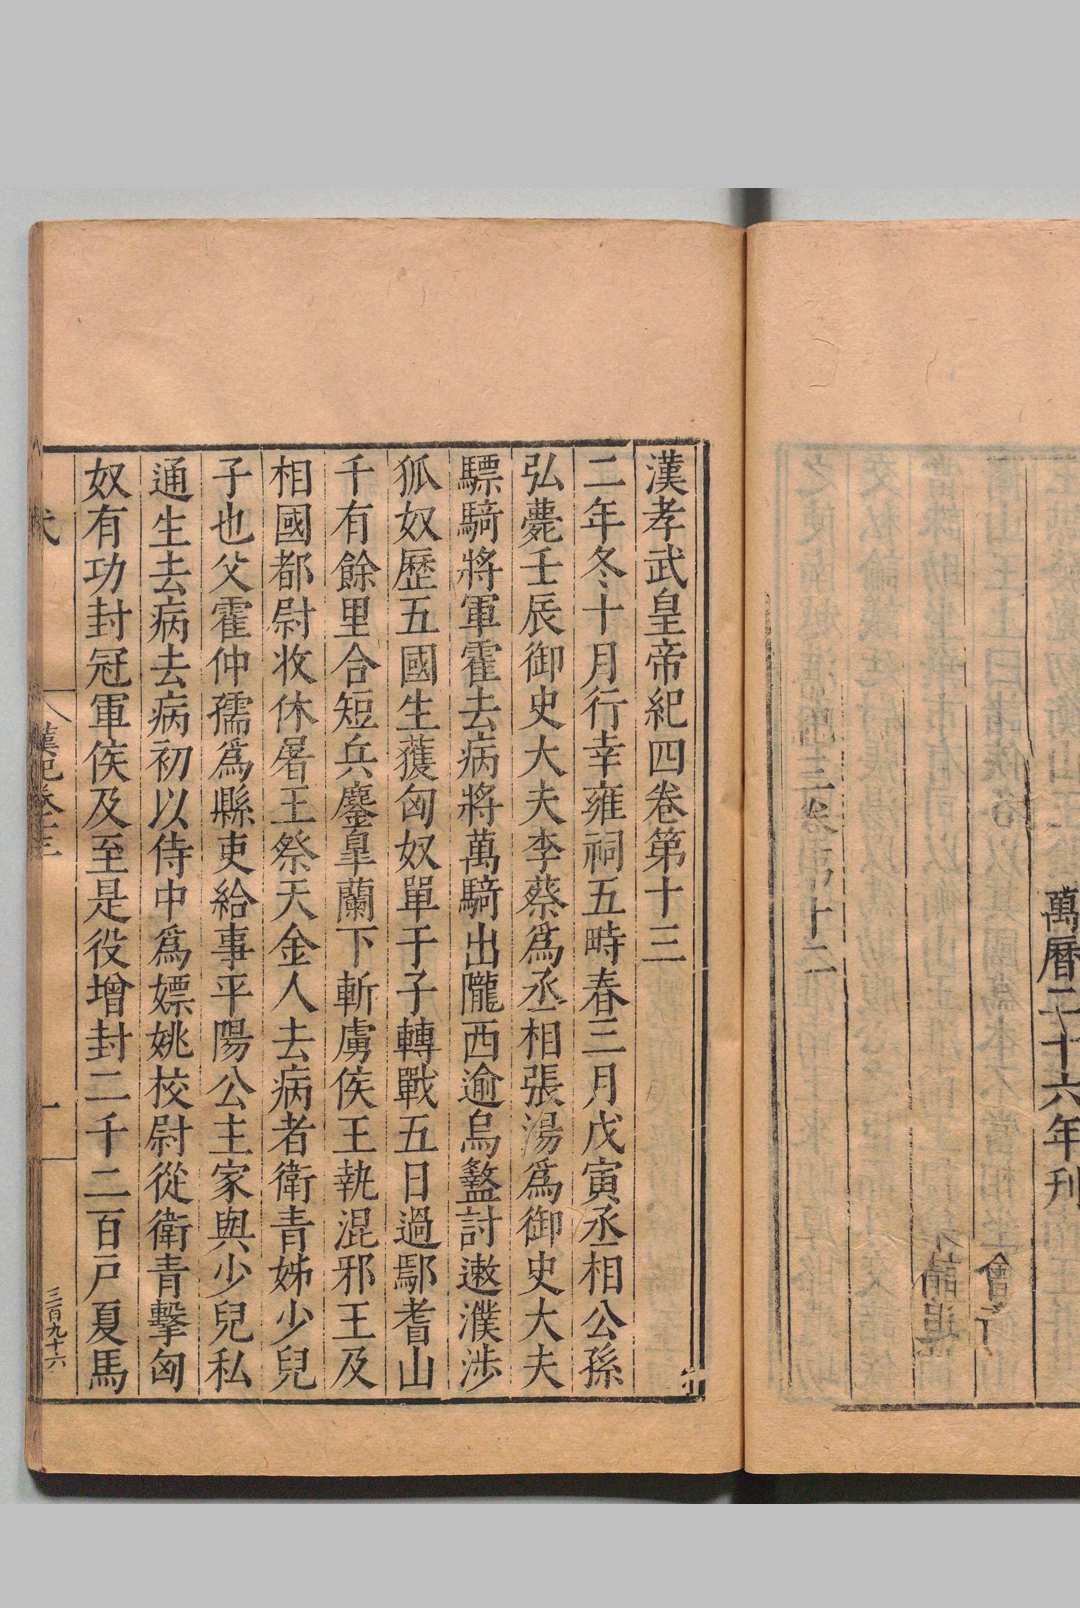 萬曆二十六年刊
漢孝武皇帝紀四卷第十三
二年冬十月行幸雍祠五畤春三月戊寅丞相公孫
弘薨壬辰御史大夫李蔡爲丞相張湯爲御史大夫
驃騎將軍霍去病將萬騎出隴西逾烏盭討遬濮涉
狐奴歷五國生獲匈奴單于子轉戰五日過鄢耆山
千有餘里合短兵鏖皐蘭下斬虜侯王執混邪王及
相國都尉收休屠王祭天金人去病者衛青姊少兒
子也父霍仲孺爲縣吏給事平陽公主家與少兒私
通生去病去病初以侍中爲嫖姚校尉從衛青擊匈
奴有功封冠軍侯及至是役增封二千二百戶夏馬
漢紀卷十三
一
三百九十六